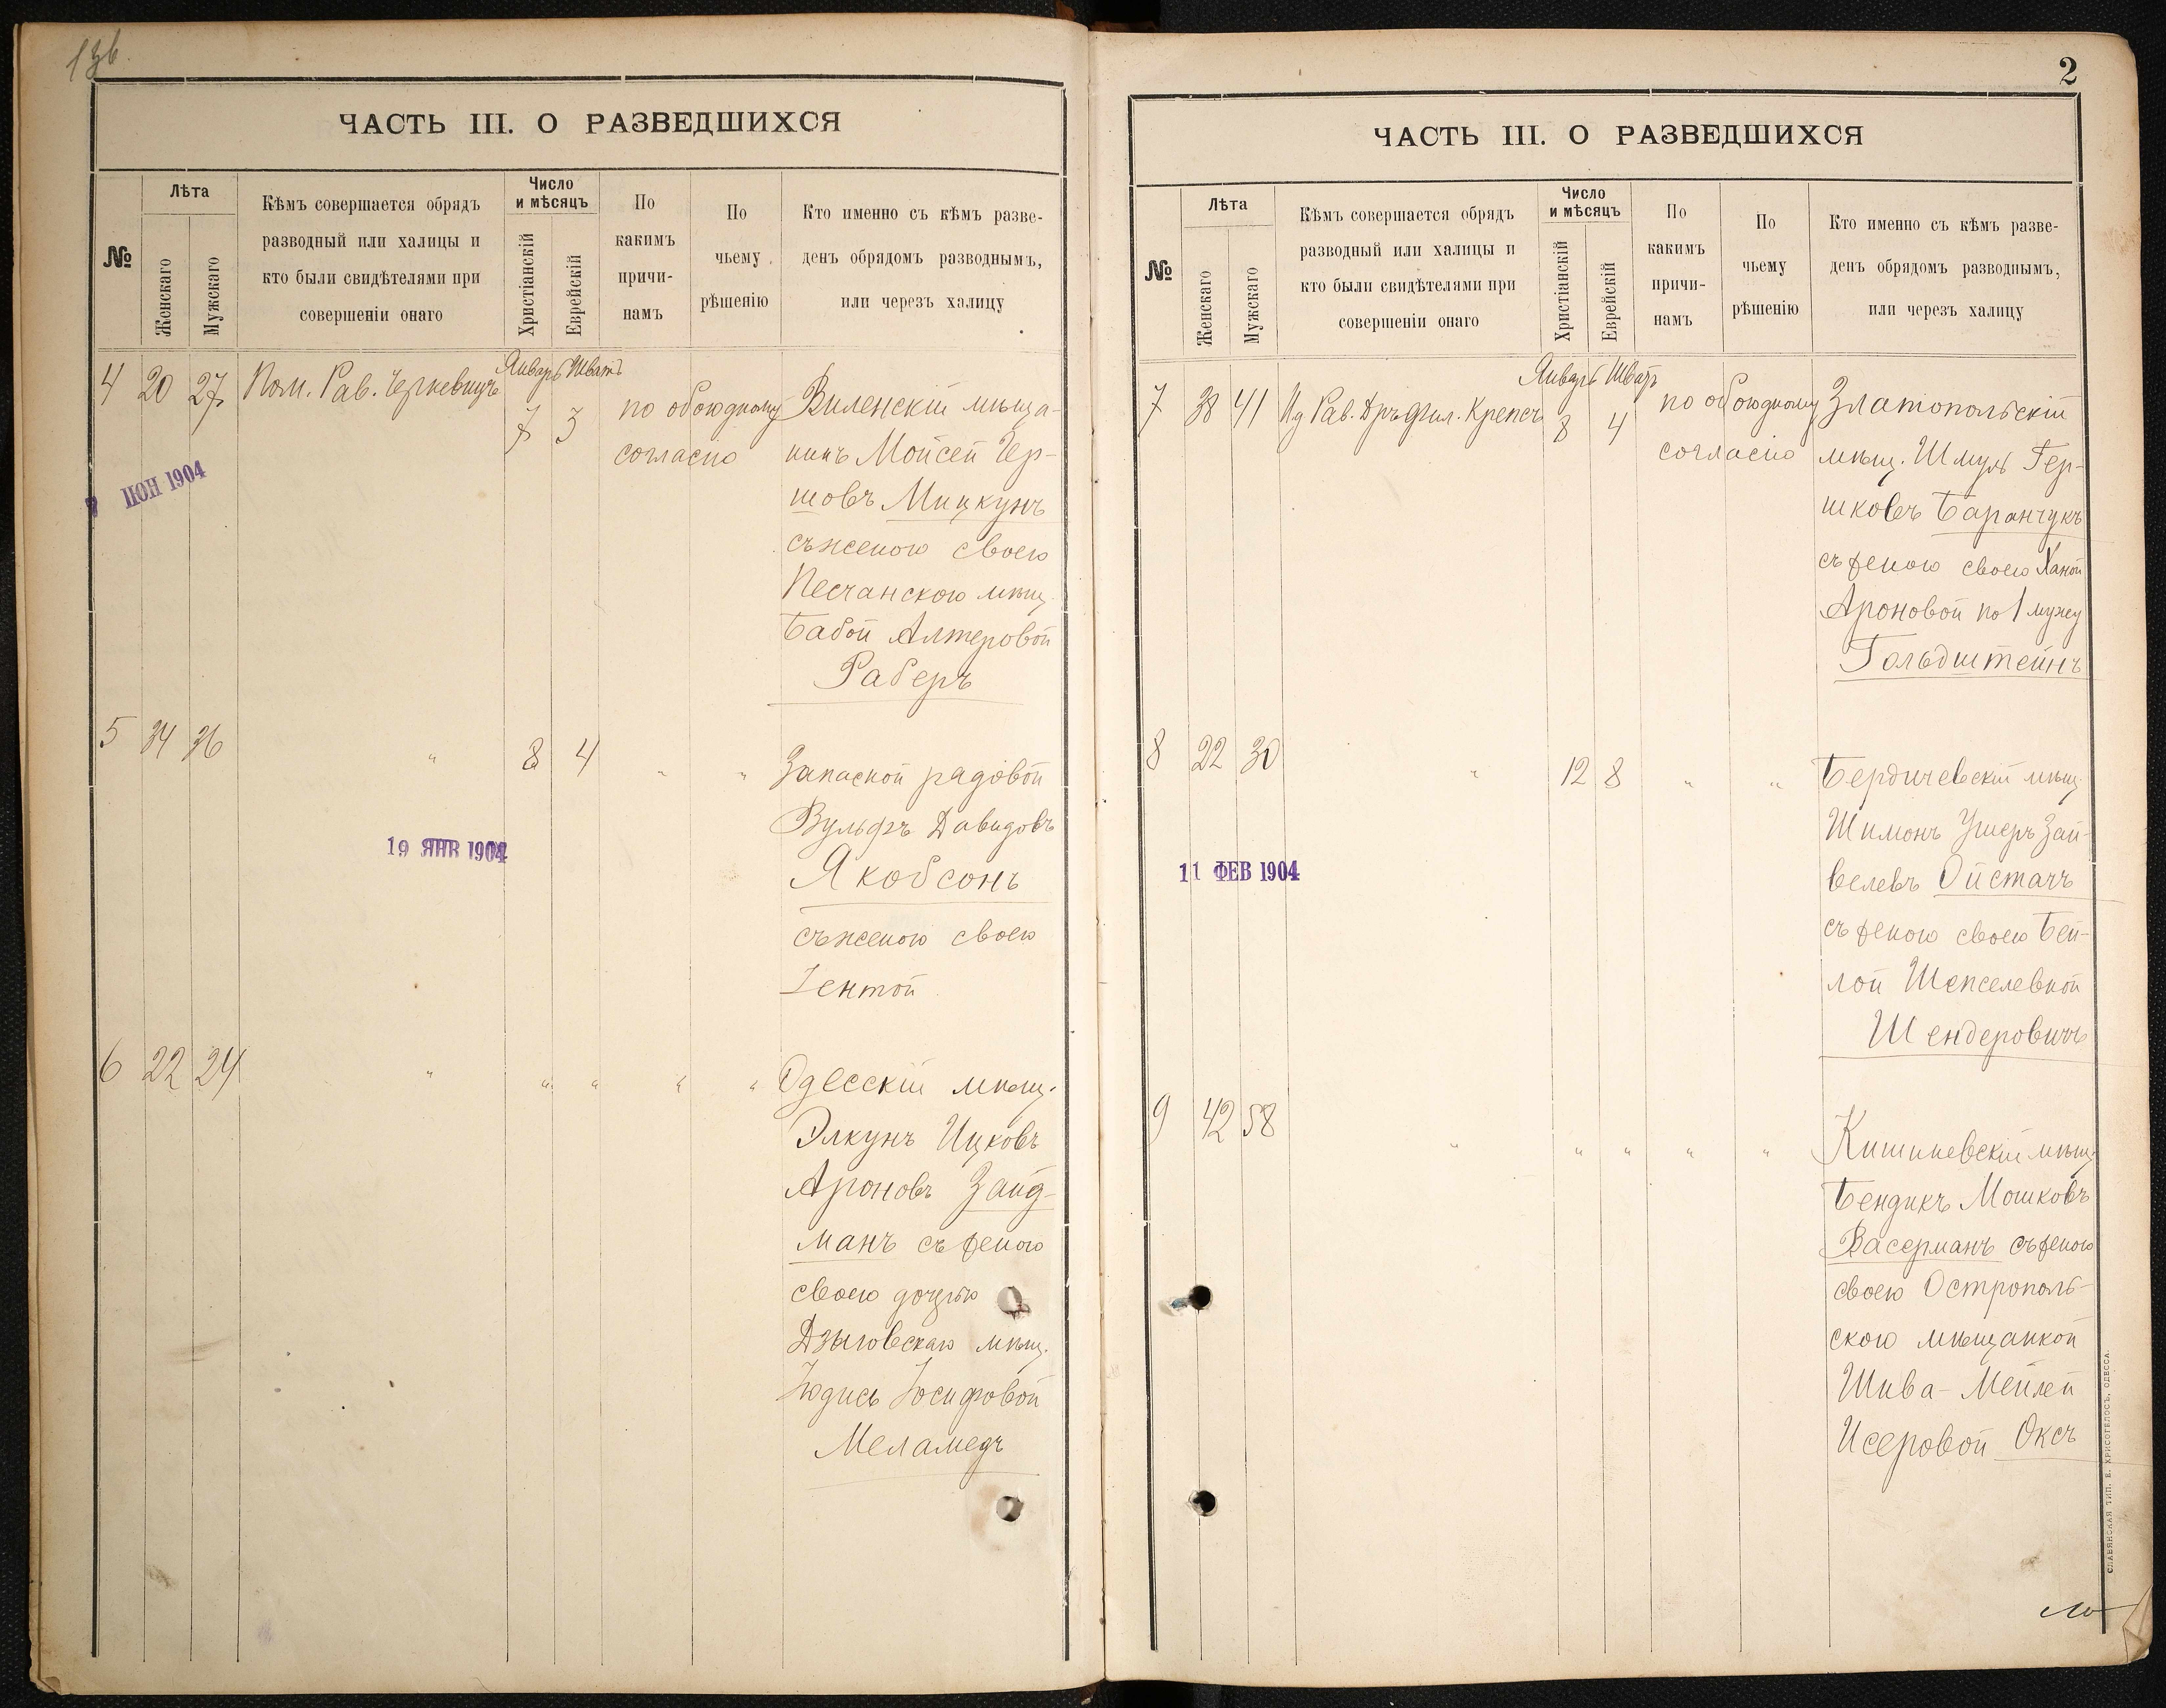 136.
ЧАСТЬ III. О РАЗВЕДШИХСЯ
№
Лѣта
Женскаго
Мужскаго
Кѣмъ совершается обрядъ
разводный или халицы и
кто были свидѣтелями при
совершеніи онаго
Число
и мѣсяцъ
Христіанскій
Еврейскій
По
какимъ
причи-
намъ
По
чьему
рѣшенію
Кто именно съ кѣмъ разве-
денъ обрядомъ разводнымъ,
или через халицу
4 20 27 Пом. Рав. Черкевицъ
Январь Шватъ
7 3
по обоюдному
согласію
Виленскій мѣща-
нинъ Мойсей Гер-
шовъ Мицкунъ
съ женою своею
Песчанскою мѣщ.
Бабой Алтеровой
Раберъ
7 ІЮН 1904
5 34 36 " 8 4 " "
Запасной рядовой
Вульфъ Давидовъ
Якобсонъ
съ женою своею
Гентой
19 ЯНВ 1904
6 22 24 " " " " "
Одесскій мѣщ.
Элкунъ Ицковъ
Ароновъ Зайд-
манъ съ женою
своею дочерью
Дзыговскаго мѣщ.
Юдись Іосифовой
Меламедъ
2
ЧАСТЬ III. О РАЗВЕДШИХСЯ
№
Лѣта
Женскаго
Мужскаго
Кѣмъ совершается обрядъ
разводный или халицы и
кто были свидѣтелями при
совершеніи онаго
Число
и мѣсяцъ
Христіанскій
Еврейскій
По
какимъ
причи-
намъ
По
чьему
рѣшенію
Кто именно съ кѣмъ разве-
денъ обрядомъ разводнымъ,
или черезъ халицу
7 38 41 Рав. Дръ Фил. Крепсъ
Январь Шватъ
8 4
по обоюдному
согласію
Златопольскій
мѣщ. Шмуль Гер-
шковъ Баранчукъ
съ женою своею Ханой
Ароновой по 1 мужу
Гольдштейнъ
8 22 30 " 12 8 " "
Бердичевскій мѣщ.
Шимонъ Ушеръ Зай-
велевъ Ойстачъ
съ женою своею Бей-
лой Шепселевной
Шендеровичъ
11 ФЕВ 1904
9 42 58 " " " " "
Кишиневскій мѣщ.
Бендикъ Мошковъ
Васерманъ съ женою
своею Острополь-
скою мѣщанкой
Шива-Мейлей
Исеровой Оксъ
СЛАВЯНСКАЯ ТИП. Е. ХРИСОГЕЛОСЪ, ОДЕССА.